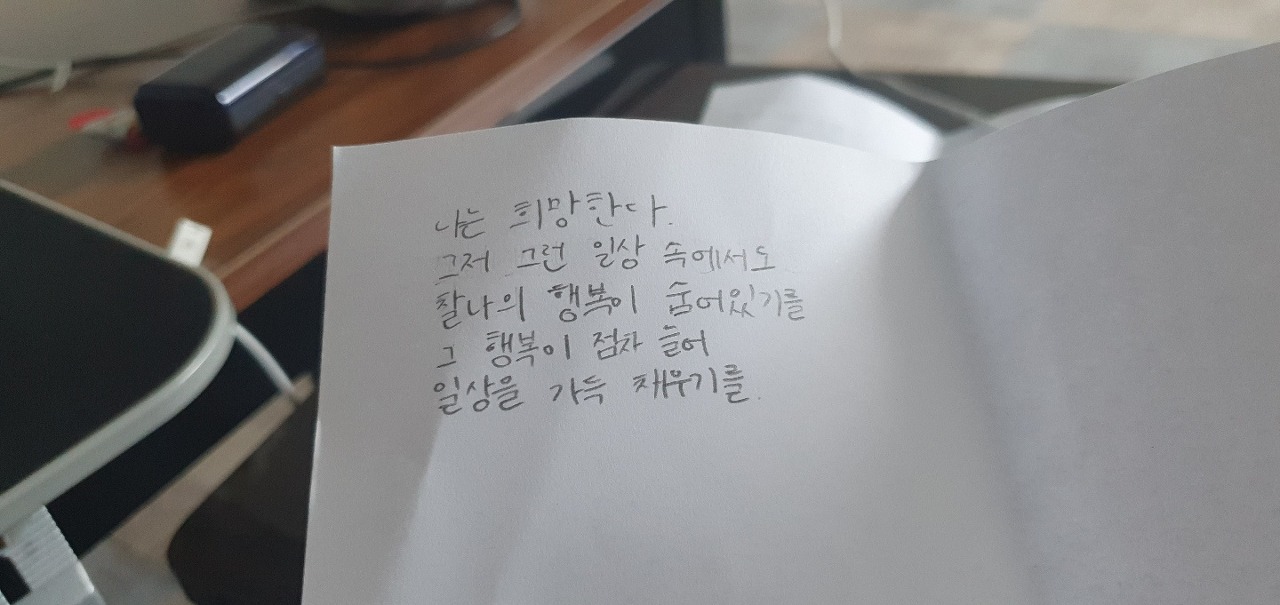 나는 희망한다.
그저 그런 일상 속에서도
찰나의 행복이 숨어있기를
그 행복이 점차 늘어
일상을 가득 채우기를.